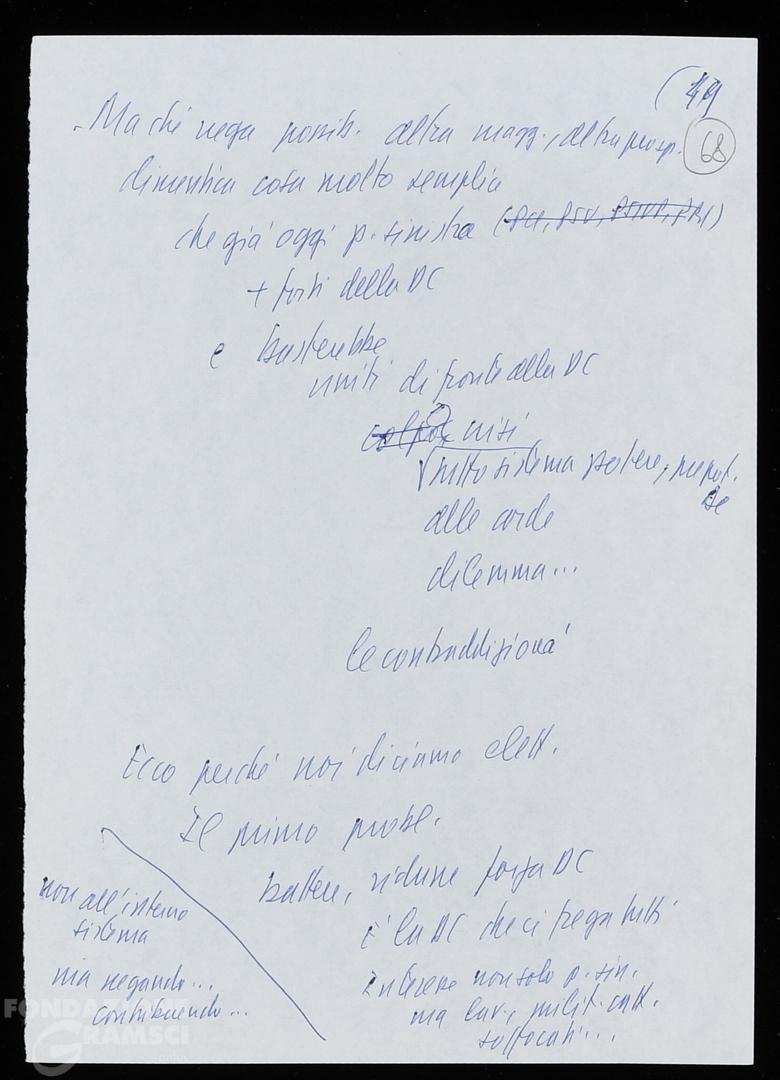 49
68
- Ma chi nega possib. altra magg., altra prosp.
dimentica cosa molto semplice
che già oggi p. sinistra (PCI, PSU, PSIUP, PRI)
+ forti della DC
e basterebbe
uniti di fronte alla DC
uniti
tutto sistema potere,
alle corde
dilemma...
le contraddizioni
Ecco perché noi diciamo elett.
Il primo probl.
battere, ridurre forza DC
È la DC che ci frega tutti
Interesse non solo p. sin.
ma lav., milit. catt.
soffocati...
non all'interno
sistema
ma negando...
contribuendo...
FONDAZIONE
GRAMSCI